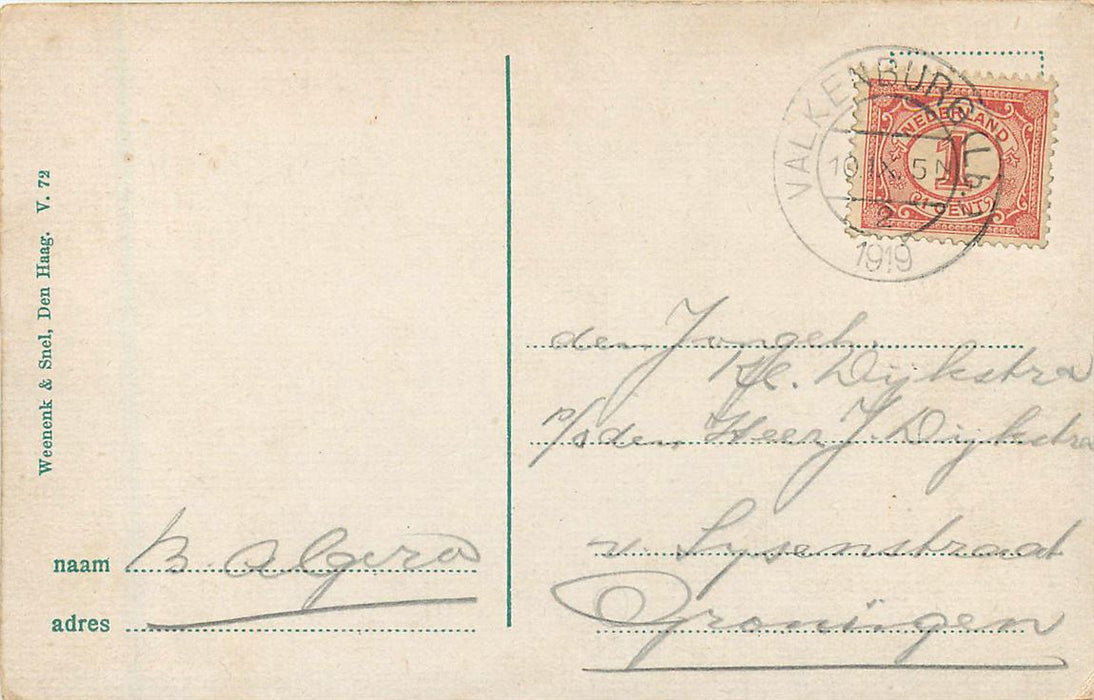 Weenenk & Snel, Den Haag. V. 72
naam B. Algera
adres
VALKENBURG (Lb.)
10 IX 5 N
2
1919
NEDERLAND
1
CENT
den Jongeh.
Dijkstra
p/a den Heer J. Dijkstra
v. Lysenstraat
Groningen